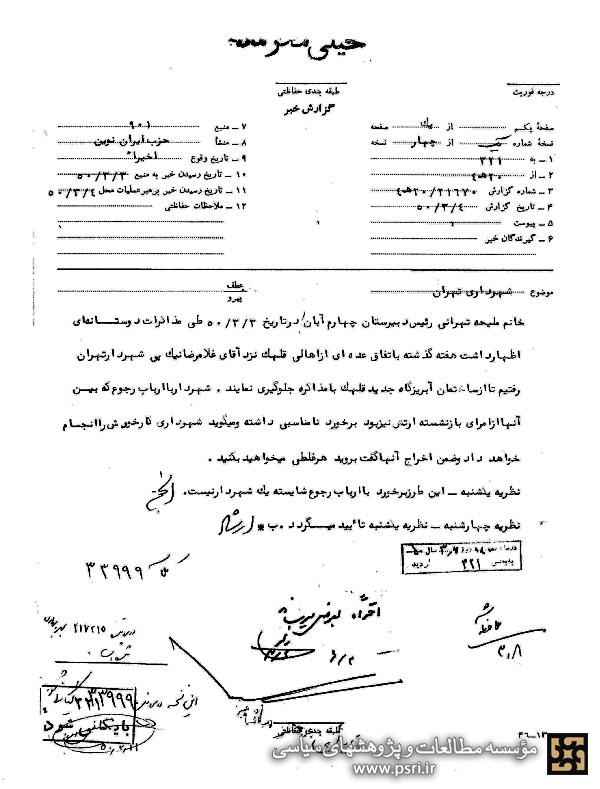 خیلی محرمانه
درجه فوریت
طبقه بندی حفاظتی
گزارش خبر
صفحه یکم از یک صفحه
نسخه شماره یک از چهار نسخه
۱ ـ به ۳۲۱
۲ ـ از ۲۰ه۴
۳ ـ شماره گزارش ۲۰/۲۱۶۷۰ه۴
۴ ـ تاریخ گزارش ۵۰/۳/۴
۵ ـ پیوست
۶ ـ گیرندگان خبر
۷ ـ منبع ۹۰۱
۸ ـ منشأ حزب ایران نوین
۹ ـ تاریخ وقوع اخیرا
۱۰ ـ تاریخ رسیدن خبر به منبع ۵۰/۳/۳
۱۱ ـ تاریخ رسیدن خبر برهبر عملیات محل ۵۰/۳/۴
۱۲ ـ ملاحظات حفاظتی
موضوع شهرداری تهران
عطف
پیرو
خانم ملیحه تهرانی رئیس دبیرستان چهارم آبان در تاریخ ۵۰/۳/۳ طی مذاکرات دوستانه‌ای
اظهار داشت هفته گذشته باتفاق عده ای از اهالی قلهک نزد آقای غلامرضا نیک پی شهردار تهران
رفتیم تا از ساختمان آبریزگاه جدید قلهک با مذاکره جلوگیری نمایند . شهردار با ارباب رجوع که بین
آنها از امرای بازنشسته ارتش نیز بود برخورد نامناسبی داشته و میگوید شهرداری کار خودش را انجام
خواهد داد و ضمن اخراج آنها گفت بروید هر غلطی میخواهید بکنید .
نظریه یکشنبه ـ این طرز برخورد با ارباب رجوع شایسته یک شهردار نیست .
نظریه چهارشنبه ـ نظریه یکشنبه تائید میگردد . ب *
۳۲۱
۳۳۹۹۹
۳/۸
۲۱۷۲۱۵
۳۳۹۹۹
بایگانی شود
طبقه بندی حفاظتی
مؤسسه مطالعات و پژوهشهای سیاسی
www.psri.ir